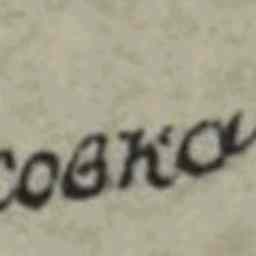 совка